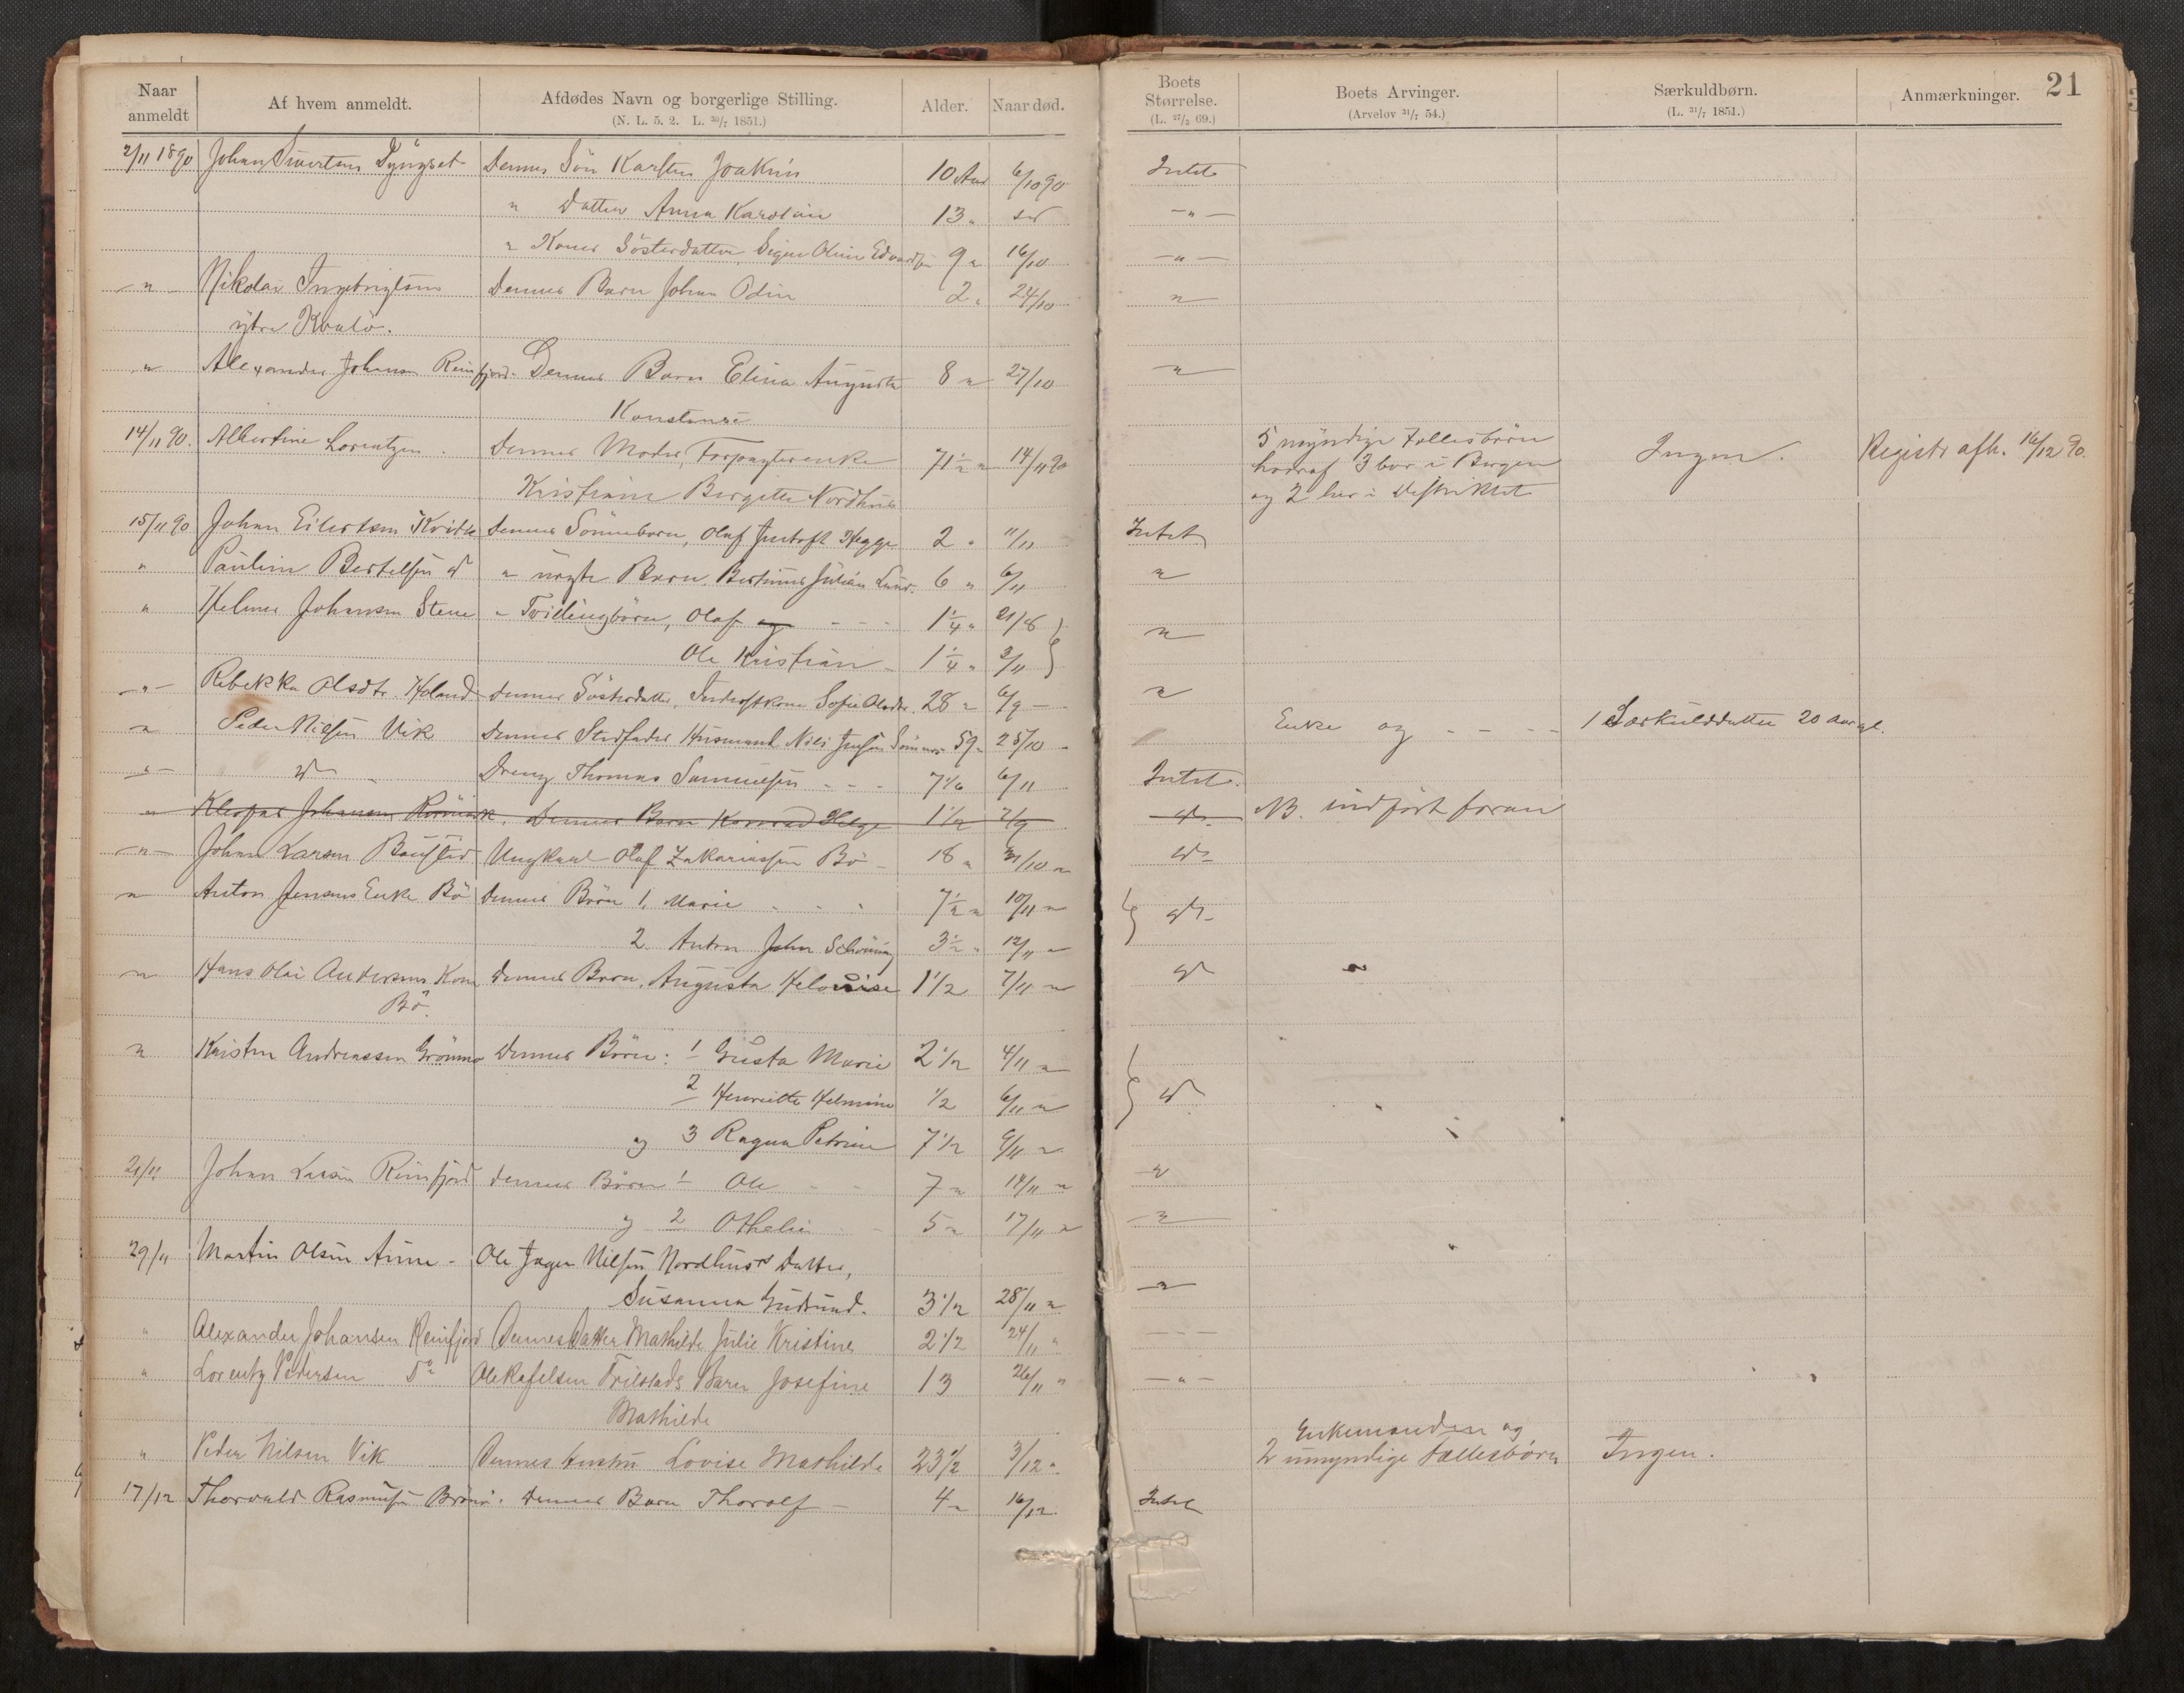 Naar anmeldt
Af hvem anmeldt.
Afdødes Navn og borgerlige Stilling.
(N. L. 5. 2. L. 30/7 1851.)
Alder.
Naar død.
Boets Størrelse.
(L. 27/3 69.)
Boets Arvinger.
(Arvelov 31/7 54.)
Særkuldbørn.
(L. 31/7 1851.)
Anmærkninger.
21
2/11 1890 Johan Sivertsen Dennes Sön Karsten Joakim 10 Aar 6/10 90 Intet
" Datter Anna Karoline 13 " -"-
" Kones Sösterdatter, Oline 9 " 16/10 -"-
-"- Nikolai Ingebrigtsen Dennes Barn Johan Odin 2 " 24/10 "
ytre Kvalö.
" Alexander Johansen Reinfjord. Dennes Barn Elina Augusta 8 " 27/10 "
Konstanse
14/11 90. Albertine Lorentzen. Dennes Moder, Forpagterenke 71 1/2 " 14/11 90 5 myndige Fællesbörn Ingen. Registr. afh. 16/12 90.
Kristiane Birgitte Nordhus hvoraf 3 bor i Bergen
og 2 her i Distriktet
15/11 90 Johan Eilertsen Dennes Sönnebarn, Olaf Hegge 2 " 11/11 Intet
" Pauline Bertelsen d " Barn, Julian 6 " 6/11 "
" Helmer Johansen Stene " Tvillingbörn, Olaf og - - - 1 1/4 " 21/8 "
Ole Kristian 1 1/4 " 3/11
-"- Rebekka Olsdtr. Holand Dennes Sösterdatter, Sofie Olsdtr. 28 " 6/9 - "
" Peder Nilsen Vik Dennes Stedfader Husmand Nils Jensen 59 " 25/10 Enke og - - - 1 Særkulddatter 20 Aar gl.
-"- do Dreng Thomas Samuelsen - - - 7 1/6 6/11 Intet.
" Kleofas Johansen Dennes Barn Konrad Helge 1 1/2 2/9 do NB. indfört foran
-"- Johan Larsen Ungkarl Olaf Zakariassen Bö - 18 " 31/10 " do
" Anton Jensens Enke Bö Dennes Börn 1, Marie 7 1/2 " 10/11 " do
2. Anton John Schöning 3 1/2 " 12/11 "
" Hans Olai Andersens Kone Dennes Barn, Augusta Helovise 1 1/2 7/11 " do
Bö.
" Kristen Andreassen Grönmo Dennes Börn: 1 Gusta Marie 2 1/2 4/11 "
2 Henriette Helmine 1/2 6/11 " do
og 3 Ragna Petrine 7 1/2 9/11 "
21/11 Johan Larsen Reinfjord Dennes Börn 1 Ole - - 7 " 14/11 " "
og 2 Othelie 5 " 17/11 " "
29/11 Martin Olsen Aune - Ole Jager Nilsen Nordhus's Datter,
Susanna Gudrund. 3 1/2 28/11 " "
" Alexander Johansen Reinfjord Dennes Datter Mathilde Julie Kristine 2 1/2 24/11 " - - -
" Lorentz Pedersen Do Ole Rafelsen Barn Josefine 13 26/11 " -"-
Mathilde
" Peder Nilsen Vik Dennes Hustru Lovise Mathilde 23 1/2 3/12 " Enkemanden og
2 umyndige Fællesbørn Ingen.
17/12 Thorvald Rasmussen Brönö. Dennes Barn Thorolf - 4 " 16/12 Intet